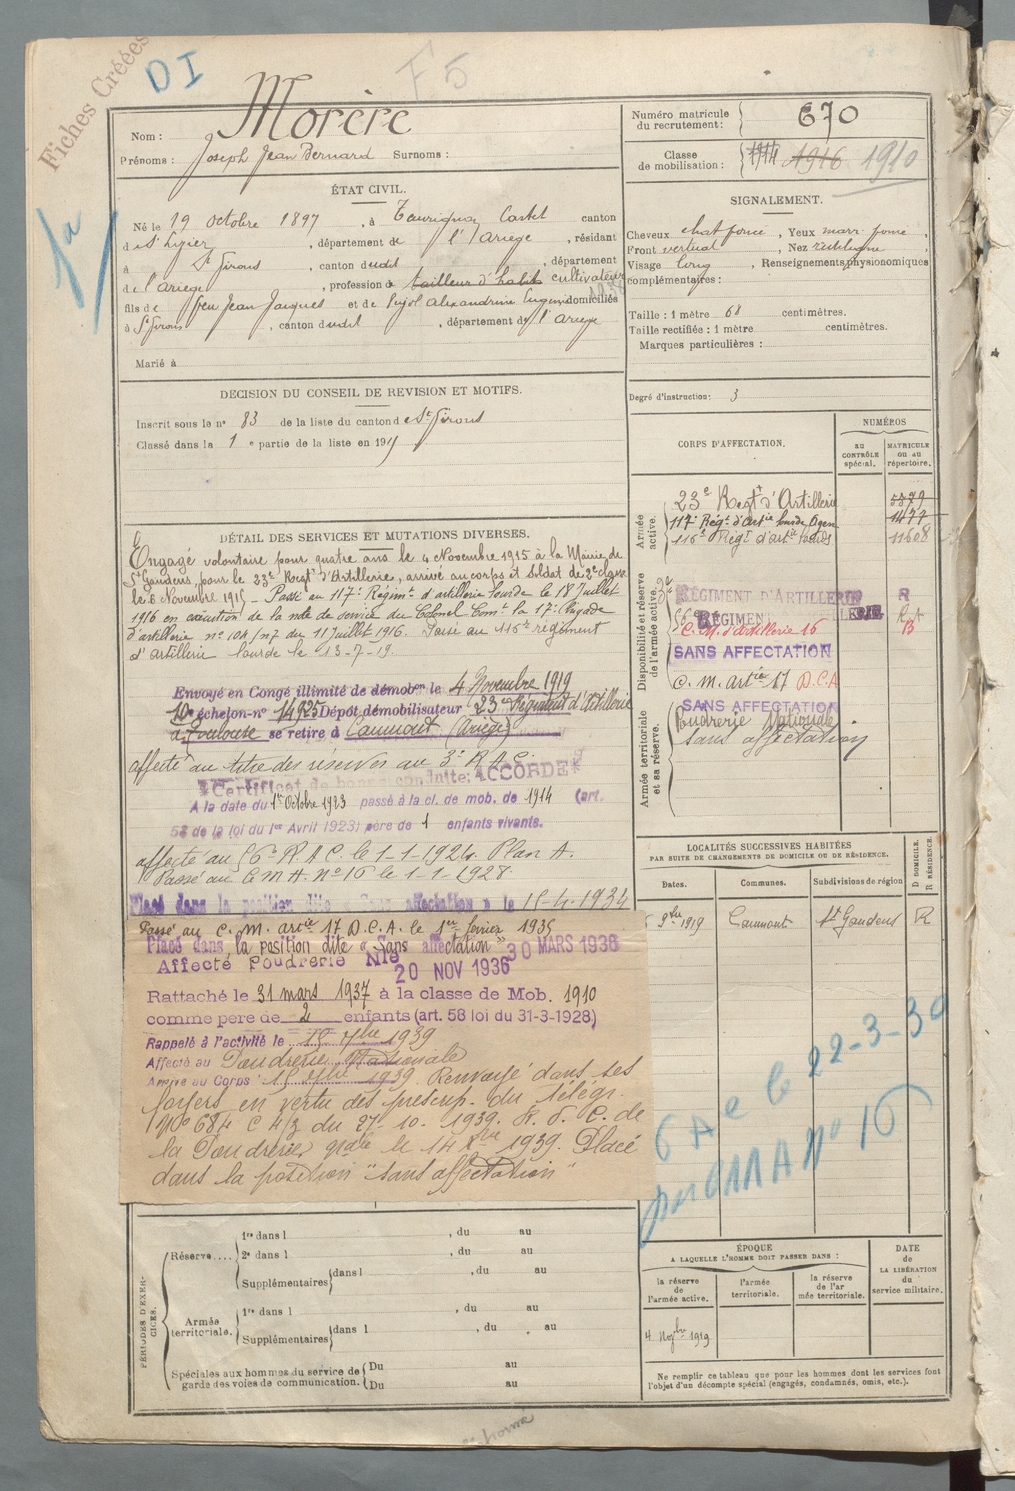 Fiches Créées
DI
F5
Nom : Morère
Prénoms : Joseph Jean Bernard Surnoms :
Numéro matricule du recrutement : 670
Classe de mobilisation : 1914 1916 1910
ÉTAT CIVIL.
Né le 19 octobre 1897, à Taurignan Castet canton
de St Lizier, département de l'Ariège, résidant
à St Girons, canton dudit, département
de l'Ariège, profession de tailleur d'habits cultivateur
fils de feu Jean Jacques et de Pujol Alexandrine Eugénie domiciliés
à St Girons, canton dudit, département de l'Ariège
Marié à
SIGNALEMENT.
Cheveux chat foncé, Yeux marr foncé,
Front vertical, Nez rectiligne,
Visage long, Renseignements physionomiques
complémentaires :
Taille : 1 mètre 68 centimètres.
Taille rectifiée : 1 mètre centimètres.
Marques particulières :
Degré d'instruction : 3
DECISION DU CONSEIL DE REVISION ET MOTIFS.
Inscrit sous le n° 83 de la liste du canton de St Girons
Classé dans la 1e partie de la liste en 191
CORPS D'AFFECTATION.
NUMÉROS
AU CONTRÔLE spécial.
MATRICULE ou au répertoire.
Armée active.
23e Regt d'Artillerie 5879
117e Régt d'Artie lourde Agen 1477
116e Régt d'artie lourde 11608
Disponibilité et réserve de l'armée active.
RÉGIMENT D'ARTILLERIE R
RÉGIMENT
C. M. d'artillerie 16
SANS AFFECTATION
C. m. artie 17 D.C.A
Armée territoriale et sa réserve.
SANS AFFECTATION
Poudrerie Nationale
sans affectation
DÉTAIL DES SERVICES ET MUTATIONS DIVERSES.
Engagé volontaire pour quatre ans le 4 Novembre 1915 à la Mairie de
St Gaudens, pour le 23e Regt d'Artillerie, arrivé au corps et soldat de 2e classe
le 6 Novembre 1915 - Passé au 117e Régimt d'artillerie lourde le 18 Juillet
1916 en exécution de la note de service du Colonel Comt la 17e brigade
d'artillerie n° 104/n7 du 11 Juillet 1916. Passé au 116e régiment
d'artillerie lourde le 13-7-19.
Envoyé en Congé illimité de démobon le 4 Novembre 1919
10e échelon-n° 14925 Dépôt démobilisateur 23e Régiment d'Artillerie
à Toulouse se retire à Caumont (Ariège)
affecté au titre des réserves au 3e R.A.C.
Certificat de bonne conduite: ACCORDÉ
A la date du 1er Octobre 1923 passé à la cl. de mob. de 1914 (art.
58 de la loi du 1er Avril 1923) père de 1 enfants vivants.
affecté au 56e R.A.C. le 1-1-1924. Plan A.
Passé au C M A. N° 16 le 1-1-1928
Placé dans la position dite « Sans affectation » le 15-4-1934
Passé au C. m. artie 17 D.C.A. le 1er février 1935
Placé dans la position dite « Sans affectation » 30 MARS 1936
Affecté Poudrerie Nle 20 NOV 1936
Rattaché le 31 mars 1937 à la classe de Mob. 1910
comme père de 2 enfants (art. 58 loi du 31-3-1928)
Rappelé à l'activité le 15 7bre 1939
Affecté au Poudrerie Nationale
Arrivé au Corps : 15 7bre 1939. Renvoyé dans ses
foyers en vertu des prescrip. du télégr.
N° 684 C 4/3 du 27-10-1939. R. d. C. de
la Poudrerie le 14 1939. Placé
dans la position "sans affectation"
LOCALITÉS SUCCESSIVES HABITÉES
PAR SUITE DE CHANGEMENTS DE DOMICILE OU DE RÉSIDENCE.
D DOMICILE. R RÉSIDENCE.
Dates. Communes. Subdivisions de région
9bre 1919 Caumont St Gaudens R
le 22-3-30
n° 16
PÉRIODES D'EXERCICES.
Réserve.... 1re dans l , du au
2e dans l , du au
Supplémentaires dans l , du au
Armée territoriale. 1re dans l , du au
Supplémentaires dans l , du au
Spéciales aux hommes du service de garde des voies de communication. Du au
Du au
ÉPOQUE
A LAQUELLE L'HOMME DOIT PASSER DANS :
la réserve de l'armée active.
l'armée territoriale.
la réserve de l'armée territoriale.
DATE DE LA LIBÉRATION du service militaire.
4 Novbre 1919
Ne remplir ce tableau que pour les hommes dont les services font
l'objet d'un décompte spécial (engagés, condamnés, omis, etc.).